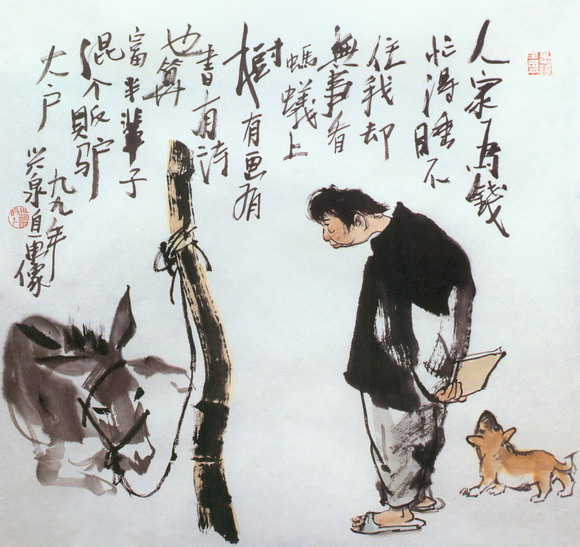 人家为钱
忙得睡不
住我却
無事看
螞蟻上
樹有画有
書有诗
也算
富半輩子
混个贩驴
大户
九九年
兴泉自画像